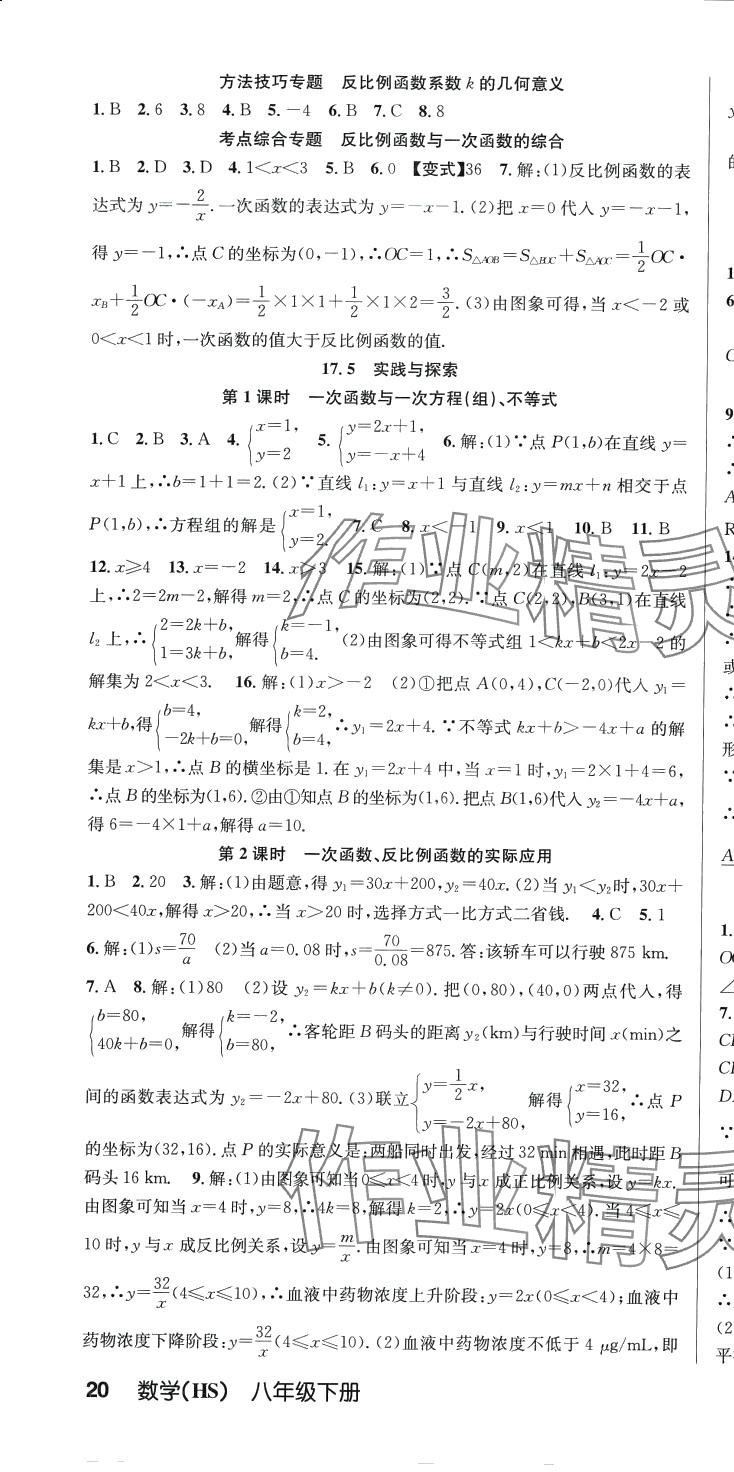 方法技巧专题　反比例函数系数 k 的几何意义
1. B　2. 6　3. 8　4. B　5. －4　6. B　7. C　8. 8
考点综合专题　反比例函数与一次函数的综合
1. B　2. D　3. D　4. 1＜x＜3　5. B　6. 0　【变式】36　7. 解:(1)反比例函数的表
达式为 y＝－2/x. 一次函数的表达式为 y＝－x－1. (2)把 x＝0 代入 y＝－x－1,
得 y＝－1,∴点 C 的坐标为(0,－1),∴OC＝1,∴S△AOB＝S△BOC＋S△AOC＝1/2 OC·
xB＋1/2 OC·(－xA)＝1/2×1×1＋1/2×1×2＝3/2. (3)由图象可得,当 x＜－2 或
0＜x＜1 时,一次函数的值大于反比例函数的值.
17.5　实践与探索
第 1 课时　一次函数与一次方程(组)、不等式
1. C　2. B　3. A　4. {x＝1, y＝2　5. {y＝2x＋1, y＝－x＋4　6. 解:(1)∵点 P(1,b)在直线 y＝
x＋1 上,∴b＝1＋1＝2. (2)∵直线 l₁:y＝x＋1 与直线 l₂:y＝mx＋n 相交于点
P(1,b),∴方程组的解是{x＝1, y＝2.　7. C　8. x＜－1　9. x＜1　10. B　11. B
12. x≥4　13. x＝－2　14. x＞3　15. 解:(1)∵点 C(m,2)在直线 l₁:y＝2x－2
上,∴2＝2m－2,解得 m＝2,∴点 C 的坐标为(2,2). ∵点 C(2,2),B(3,1)在直线
l₂ 上,∴{2＝2k＋b, 1＝3k＋b,解得{k＝－1, b＝4.　(2)由图象可得不等式组 1＜kx＋b＜2x－2 的
解集为 2＜x＜3.　16. 解:(1)x＞－2　(2)①把点 A(0,4),C(－2,0)代入 y₁＝
kx＋b,得{b＝4, －2k＋b＝0,解得{k＝2, b＝4,∴y₁＝2x＋4. ∵不等式 kx＋b＞－4x＋a 的解
集是 x＞1,∴点 B 的横坐标是 1. 在 y₁＝2x＋4 中,当 x＝1 时,y₁＝2×1＋4＝6,
∴点 B 的坐标为(1,6). ②由①知点 B 的坐标为(1,6). 把点 B(1,6)代入 y₂＝－4x＋a,
得 6＝－4×1＋a,解得 a＝10.
第 2 课时　一次函数、反比例函数的实际应用
1. B　2. 20　3. 解:(1)由题意,得 y₁＝30x＋200,y₂＝40x. (2)当 y₁＜y₂时,30x＋
200＜40x,解得 x＞20,∴当 x＞20 时,选择方式一比方式二省钱.　4. C　5. 1
6. 解:(1)s＝70/a　(2)当 a＝0.08 时,s＝70/0.08＝875. 答:该轿车可以行驶 875 km.
7. A　8. 解:(1)80　(2)设 y₂＝kx＋b(k≠0). 把(0,80),(40,0)两点代入,得
{b＝80, 40k＋b＝0,解得{k＝－2, b＝80,∴客轮距 B 码头的距离 y₂(km)与行驶时间 x(min)之
间的函数表达式为 y₂＝－2x＋80. (3)联立{y＝1/2 x, y＝－2x＋80,解得{x＝32, y＝16,∴点 P
的坐标为(32,16). 点 P 的实际意义是:两船同时出发,经过 32 min 相遇,此时距 B
码头 16 km.　9. 解:(1)由图象可知当 0≤x＜4 时,y 与 x 成正比例关系,设 y＝kx.
由图象可知当 x＝4 时,y＝8,∴4k＝8,解得 k＝2,∴y＝2x(0≤x＜4). 当 4≤x≤
10 时,y 与 x 成反比例关系,设 y＝m/x. 由图象可知当 x＝4 时,y＝8,∴m＝4×8＝
32,∴y＝32/x(4≤x≤10),∴血液中药物浓度上升阶段:y＝2x(0≤x＜4);血液中
药物浓度下降阶段:y＝32/x(4≤x≤10). (2)血液中药物浓度不低于 4 μg/mL,即
20　数学(HS)　八年级下册
作业精灵
作业精灵